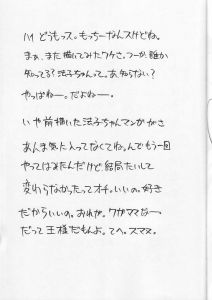 ハイ どうもっス。もっちーなんスけどね。
まぁ、また描いてみたワケさ。つーか、誰か
知ってる?法子ちゃんって。あ、知らない?
やっぱねー。だよねー。
いや前描いた法子ちゃんマンガがさ
あんま気に入ってなくてね。んでもう一回
やってはみたんだけど結局たいして
変わらなかったってオチ。いいの。好き
だからいいの。おれが。ワガママなー
だって王様だもんよ。てへ。スマヌ。